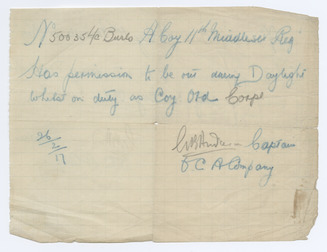 A Coy 11th Middlesex Reg
Has permission to be out during Daylight
whilst on duty as Coy Ord Corpl
26/2/17
Captain
O C A Company